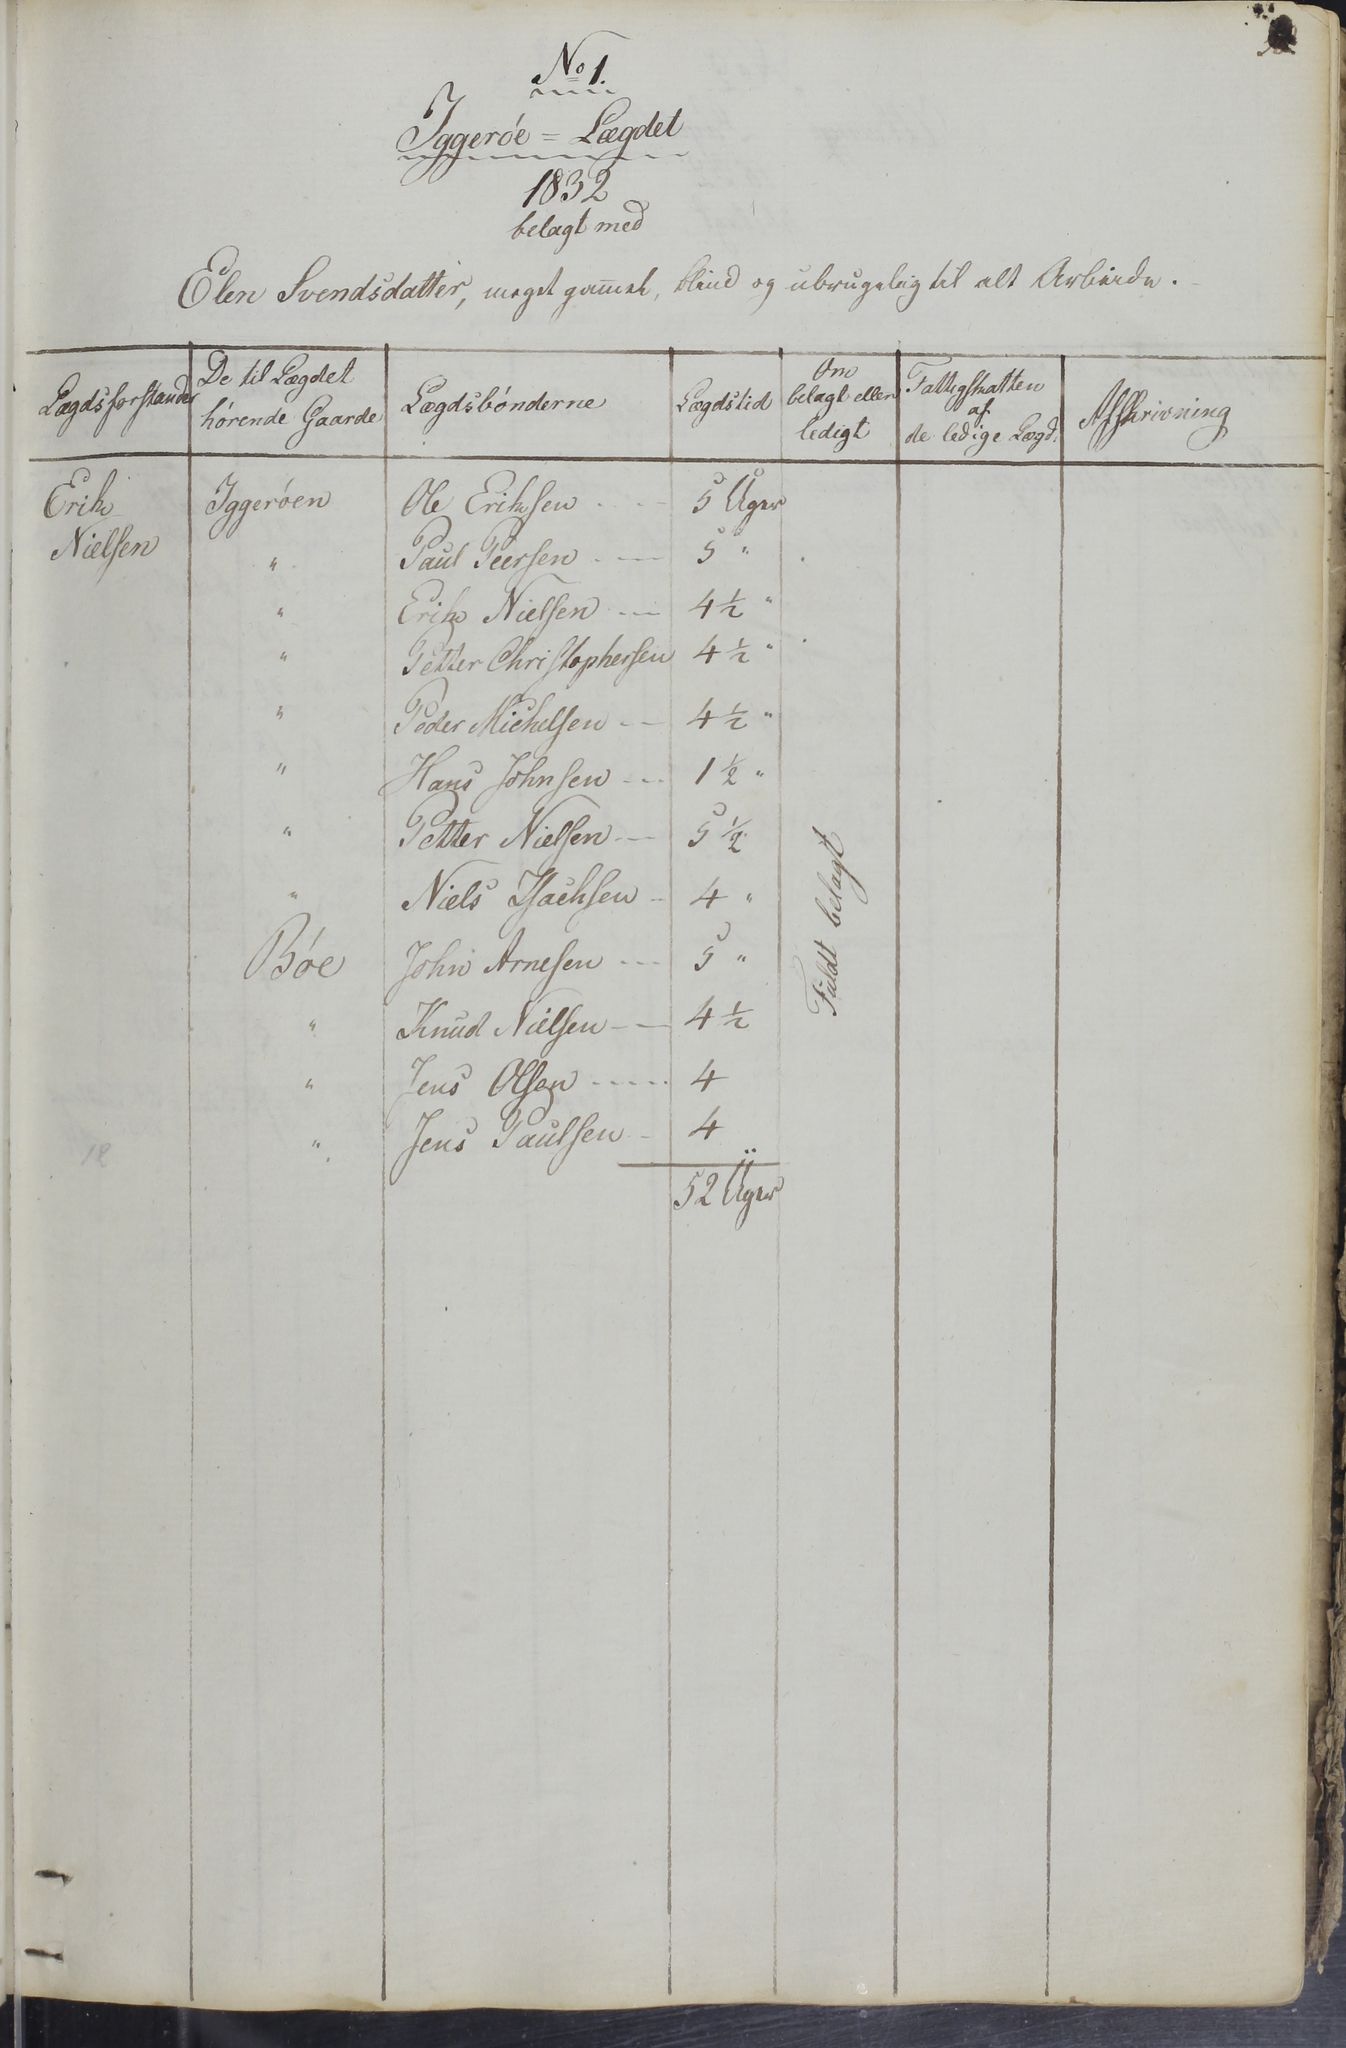 No 1.
Iggerøe = Lægdet
1832
belagt med
Elen Svendsdatter, meget gammel, blind og ubrugelig til alt Arbeide.
Lægdsforstander De til Lægdet hørende Gaarde Lægdsbønderne Lægdstid Om belagt eller ledigt Fattigskatten af de ledige Lægd. Afskrivning
Erik Nielsen Iggerøen Ole Eriksen 5 Uger
" Paul Peersen 5 "
" Erik Nielsen 4 1/2 "
" Petter Christophersen 4 1/2 "
" Peder Michelsen 4 1/2 "
" Hans Johnsen 1 1/2 "
" Petter Nielsen 5 1/2
" Niels Isachsen 4 "
Bøe John Arnesen 5 "
" Knud Nielsen 4 1/2
" Jens Olsen 4
" Jens Paulsen 4
52 Uger
Fuldt belagt
12